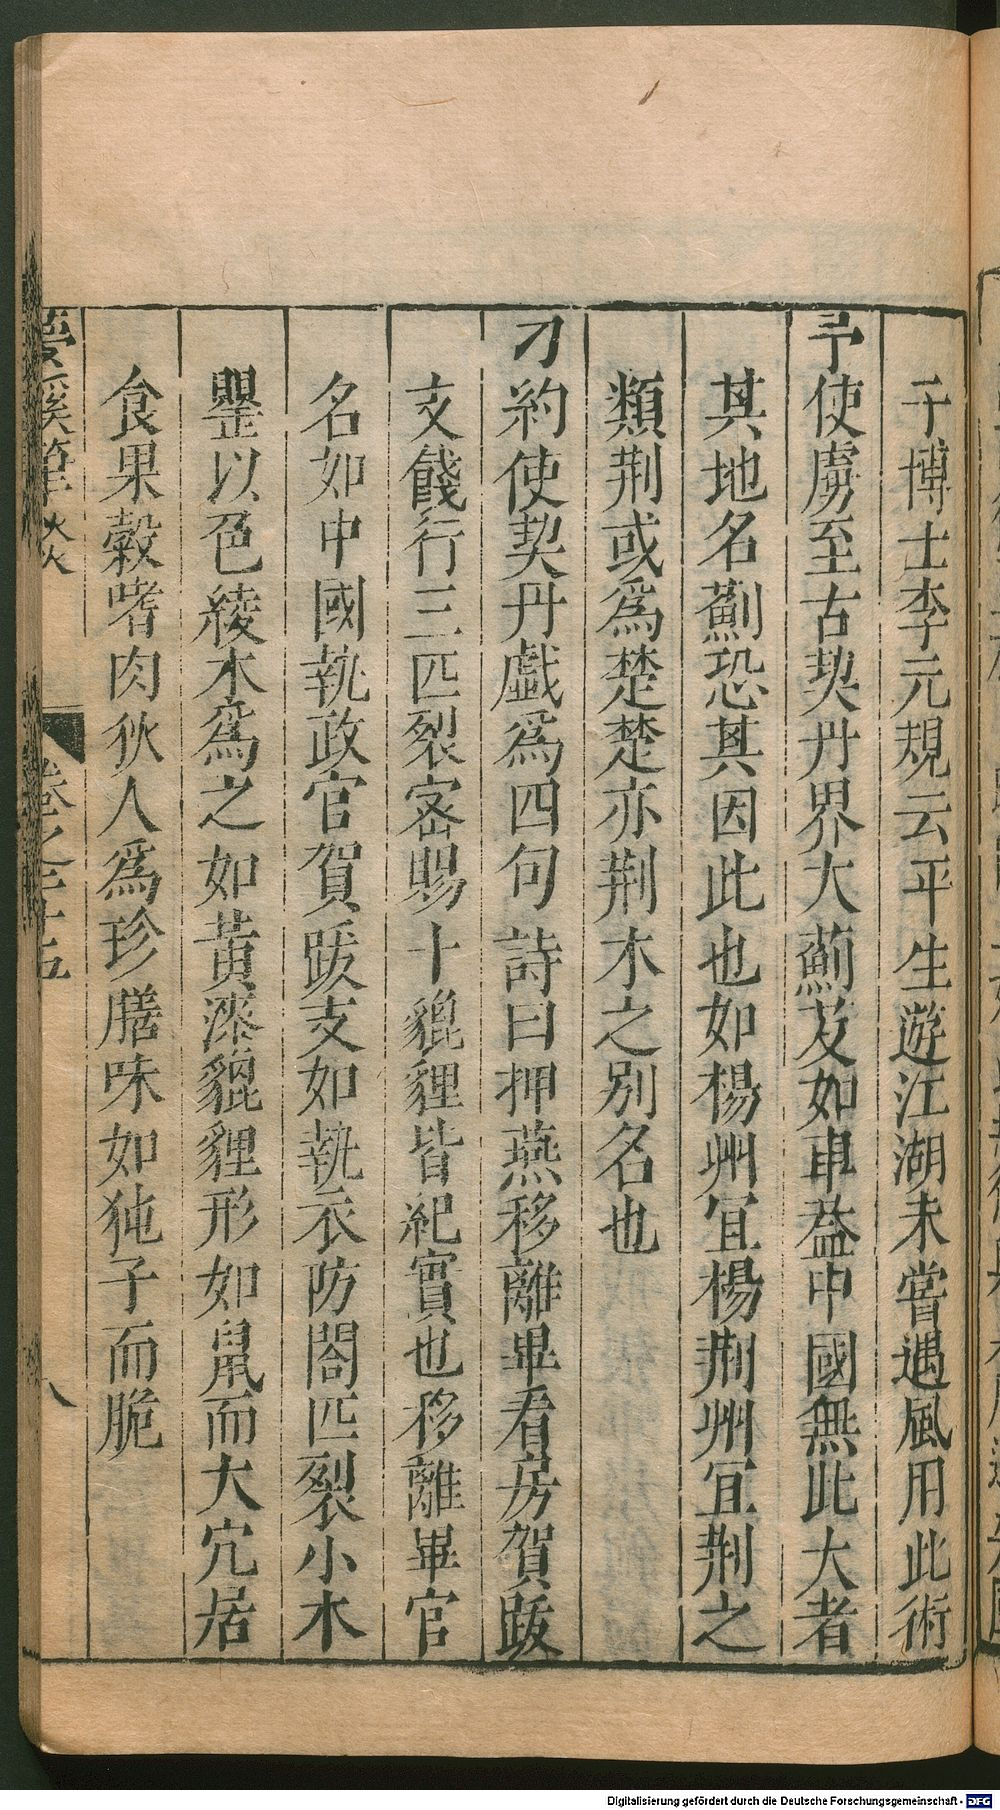 子博士李元規云平生遊江湖未嘗遇風用此術
予使虜至古契丹界大薊芨如車葢中國無此大者
其地名薊恐其因此也如楊州宜楊荆州宜荆之
類荆或爲楚楚亦荆木之别名也
刁約使契丹戲爲四句詩曰押燕移離畢看房賀跋
支餞行三匹裂宻賜十貔貍皆紀實也移離畢官
名如中國執政官賀跋支如執衣防閤匹裂小木
罌以色綾木爲之如黄漆貔貍形如鼠而大穴居
食果榖嗜肉狄人爲珍膳味如㹠子而脆
夢溪筆談 卷之二十五 八
Digitalisierung gefördert durch die Deutsche Forschungsgemeinschaft - DFG